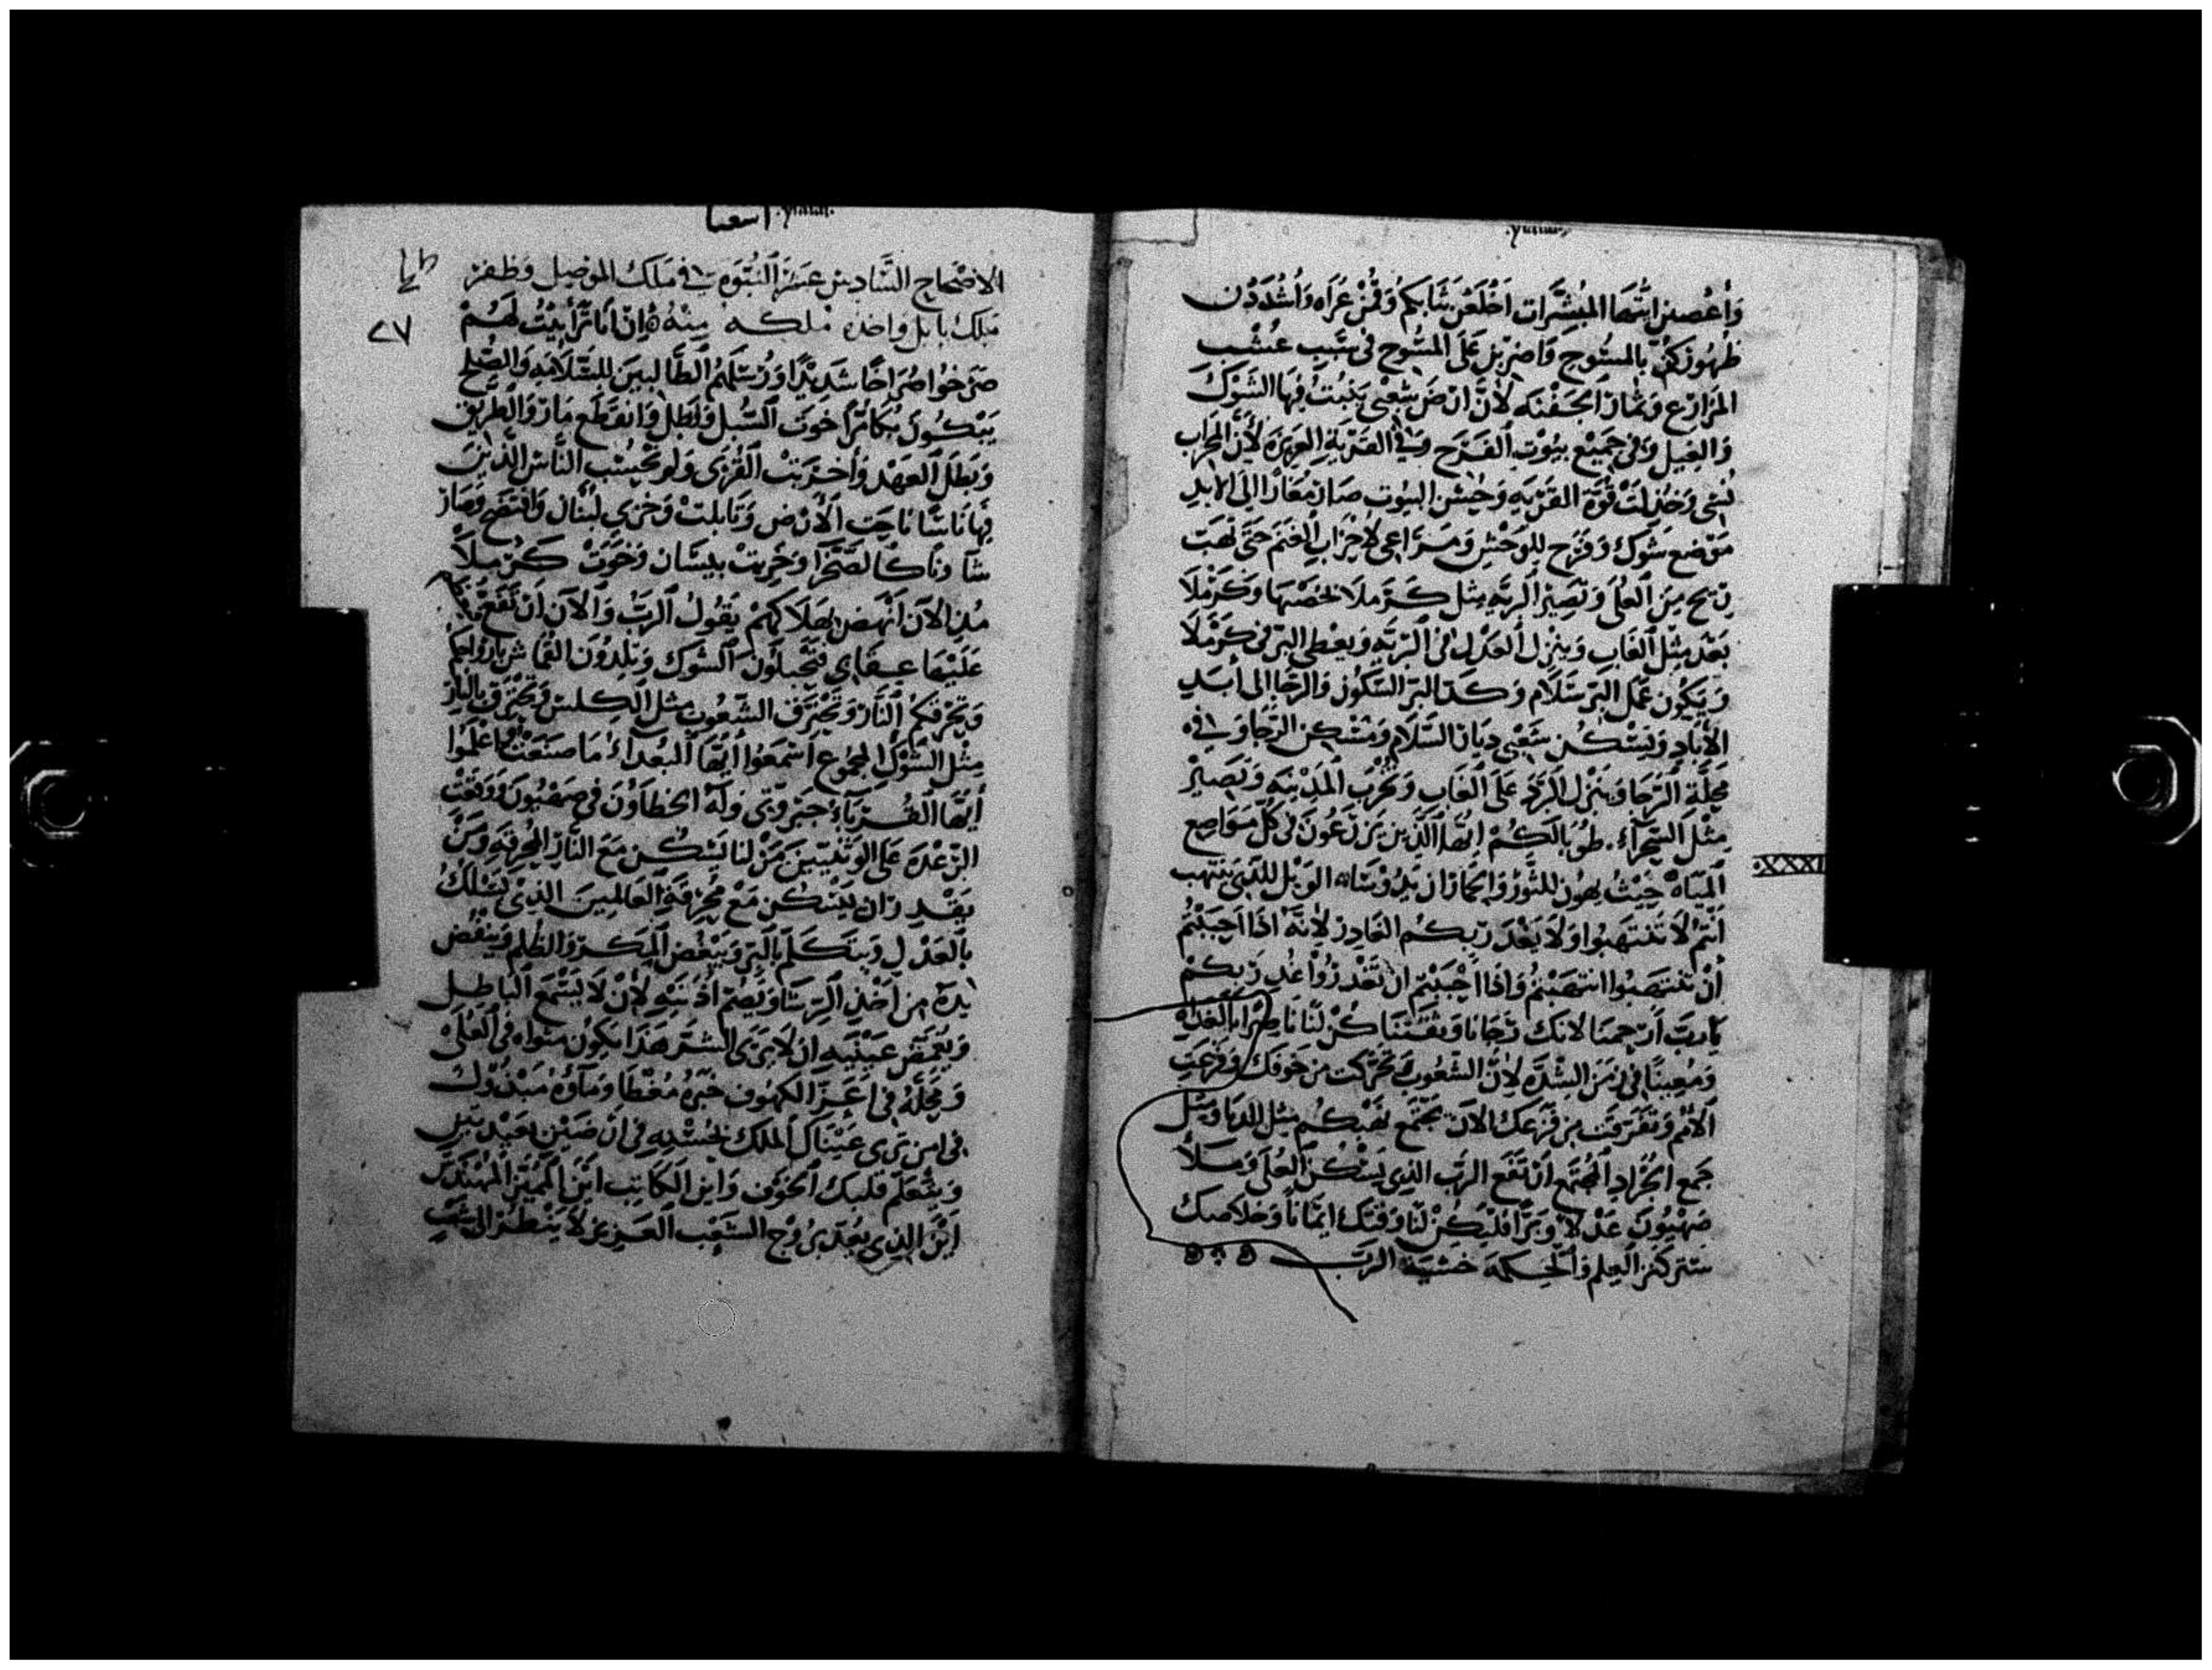 وَاُعْصِين ايتُهَا المبُشِّرَات اخْلَعْن ثيَابكمُ وَقُمْن عُرَاه وَاُشْدَدْن
ظهُورَكنّ بالمسُوح وَاضربْن عَلَى المسُوح في سَبَب عُشْب
المزَارع وَثمَار الجَفْنَه لأنَّ ارْض شَعْبي يَنبتُ فيهَا الشَوْك
وَالغِيل وَفي جَميْع بيُوت الفَرَح وَفي القَرْيَةِ العَزيزَه لأنَّ المحرَاب
نُسى وَخُذِلَتْ قُوَّة القَرْيَهِ وَحُسْن البيُوت صَار مَغَارًا الَى الابدِ
مَوْضع شَوك وَفَرَح للوَحْشِ وَمَرَاعي لأحْزَاب الغنَم حَتّى تهَبّ
ريح مِنَ العُلَى وَتَصِيْر البريّه مثل كَرْملَا لخصْبهَا وَكَرْمَلَا
بَعْد مِثْل الغَاب وَينزِل العَدْل في البَريّه وَيعْطي البرّ في كَرْمَلَا
وَيَكوُن عَمَل البرّ سَلَام وَكَدّ البرّ السّكوُن وَالرّجَا الى أبَد
الآبَاد وَيَسْكُن شَعْبي ديَار السَّلَام وَمَسْكن الرّجَا وَفي
مَحِلَّة الرَّجَا وَينزل البرَد عَلى الغَاب وَتخْرب المَدينَه وَتَصِيْر
مِثْل الصَّحَرَاءَ. طوُبَا لَكُمْ ايُّهَا الَّذين يَزْرَعُونَ في كُلّ مَوَاضِع
المَيَاه حَيْثُ يهوُن للثَّوْرُ وَالحمَار ان يَدُوسَاه الوَيْل للَّذي يَنتهب
أَنتُم لَا تَنْتَهبُوا وَلَا يَغْدَر بكُم الغَادِر لأنَّه اذَا احبَبْتُم
أنْ تَنْتَهبُوا انتهَبْتُم وَاذَا احْبَبْتُم ان تَغْدرُوا غُدر بكُمْ
يَاربّ أرحمنا لانك رَجَانا وَثقَتُنَا كُنْ لنَا نَاصِرًا بالغدَاه
وَمُعِينًا في زمَن الشِدَّه لأنَّ الشعُوب تَحَرّكت من خَوفَك وَفزعَت
الأمَم وَتفَرَّقَت من فزَعك الآن يجْتَمع نَهْبكُم مثل الدبَا وَمثل
جَمع الجُرَاد المُجْتَمع أنْ تَفَع الربّ الذِي يَسْكُن العُلَى وَمَلأ
صَهْيُونَ عَدْلًا وَبَرًا فليَكُنْ لنَا وَقتَك ايمَانًا وَخلَاصك
ستر كنز العِلم وَالحِكمه خشيَة الربّ
اشعيا
الاصْحَاح السَّادس عشَر النُبُوّه في مَلك الموْصِل وَظفر
مَلك بابل وَاخذه ملكه مِنْهُ اِنْ اَنا تَرَأَيْتُ لهُمْ
صَرَخُوا صُرَاخًا شَديْدًا وَرُسُلَهُم الطَّالبين للسَّلَامَه وَالصُّلح
يَبْكُونَ بُكَا مُرًّا خوَت السُّبل وَبَطل وَانقَطع مَار الطّريق
وَبَطلَ العَهْد وَاُخربَتْ القُرَى وَلَم يحْسب الناس الذين
فيهَا نَاسًا نَاحَت الأرْض وَتَابلت وَخَزى لُبنَان وَافْتضح وَصَار
شَارونَا كالصَّحْرَا وَخربتْ بيسَان وَخوَتْ كَرْملَا
مُنذ الآن اَنهَض بهَلَاكهمْ يَقُولُ الربّ وَالآن ان تَفَع
عَليْهَا عِقَابي فتَحْبَلُونَ الشوْك وَتلِدُونَ القُمَاش بأرْوَاحِكم
وَتحْرقكمُ النَّار وَتحْترَق الشعُوب مِثْل الكِلس وَتَحْتَرق بالنَّار
مِثْل الشَّوْك المجمُوع اسْمعوُا اَيُّهَا البُعدَاء مَا صنَعتُ وَاعلَمُوا
أَيُّهَا القُرَبَاءُ جَبَرُوتي وَلَّه الخطاؤن في صهْيُون وَوَقعتْ
الرّعْدَه عَلى الوَثنيّينَ مَنْ لنَا يَسْكُن مَع النَّارِ المحْرقَهِ وَمَنْ
يَقْدِر ان يَسْكن مَعَ مُحْرقَةِ العَالمِينَ الذِيْ يَسْلك
بالعَدْل وَيتَكلم بالبرّ وَيَبْغض المكر وَالظّلم وَينْفض
يدَه من اَخْذِ الرّشَا وَيَصُمّ اذُنَيْهِ لأنْ لَا يَسْمَعَ البَاطِل
وَيغْمِض عَيْنَيْهِ ان لَا يرَى الشر هَذا يَكون مثوَاه في العُلَى
وَمحِلُّه في أعَزّ الكهُوف خُبْزهُ مُعْطَا وَمَاؤهُ مَبْذول
في امن تَرى عَيْنَاك الملك بحُسْنهِ في أرْضين بَعيْد تبَر
وَيتعلّم قلبك الخوْف وَاين الكَاتِب ايْن المميّز المهْتدر
ايْنَ الذِي يعُدّ بُرُوْج الشَعْب العَزيز لا ينْظر الى شعْب